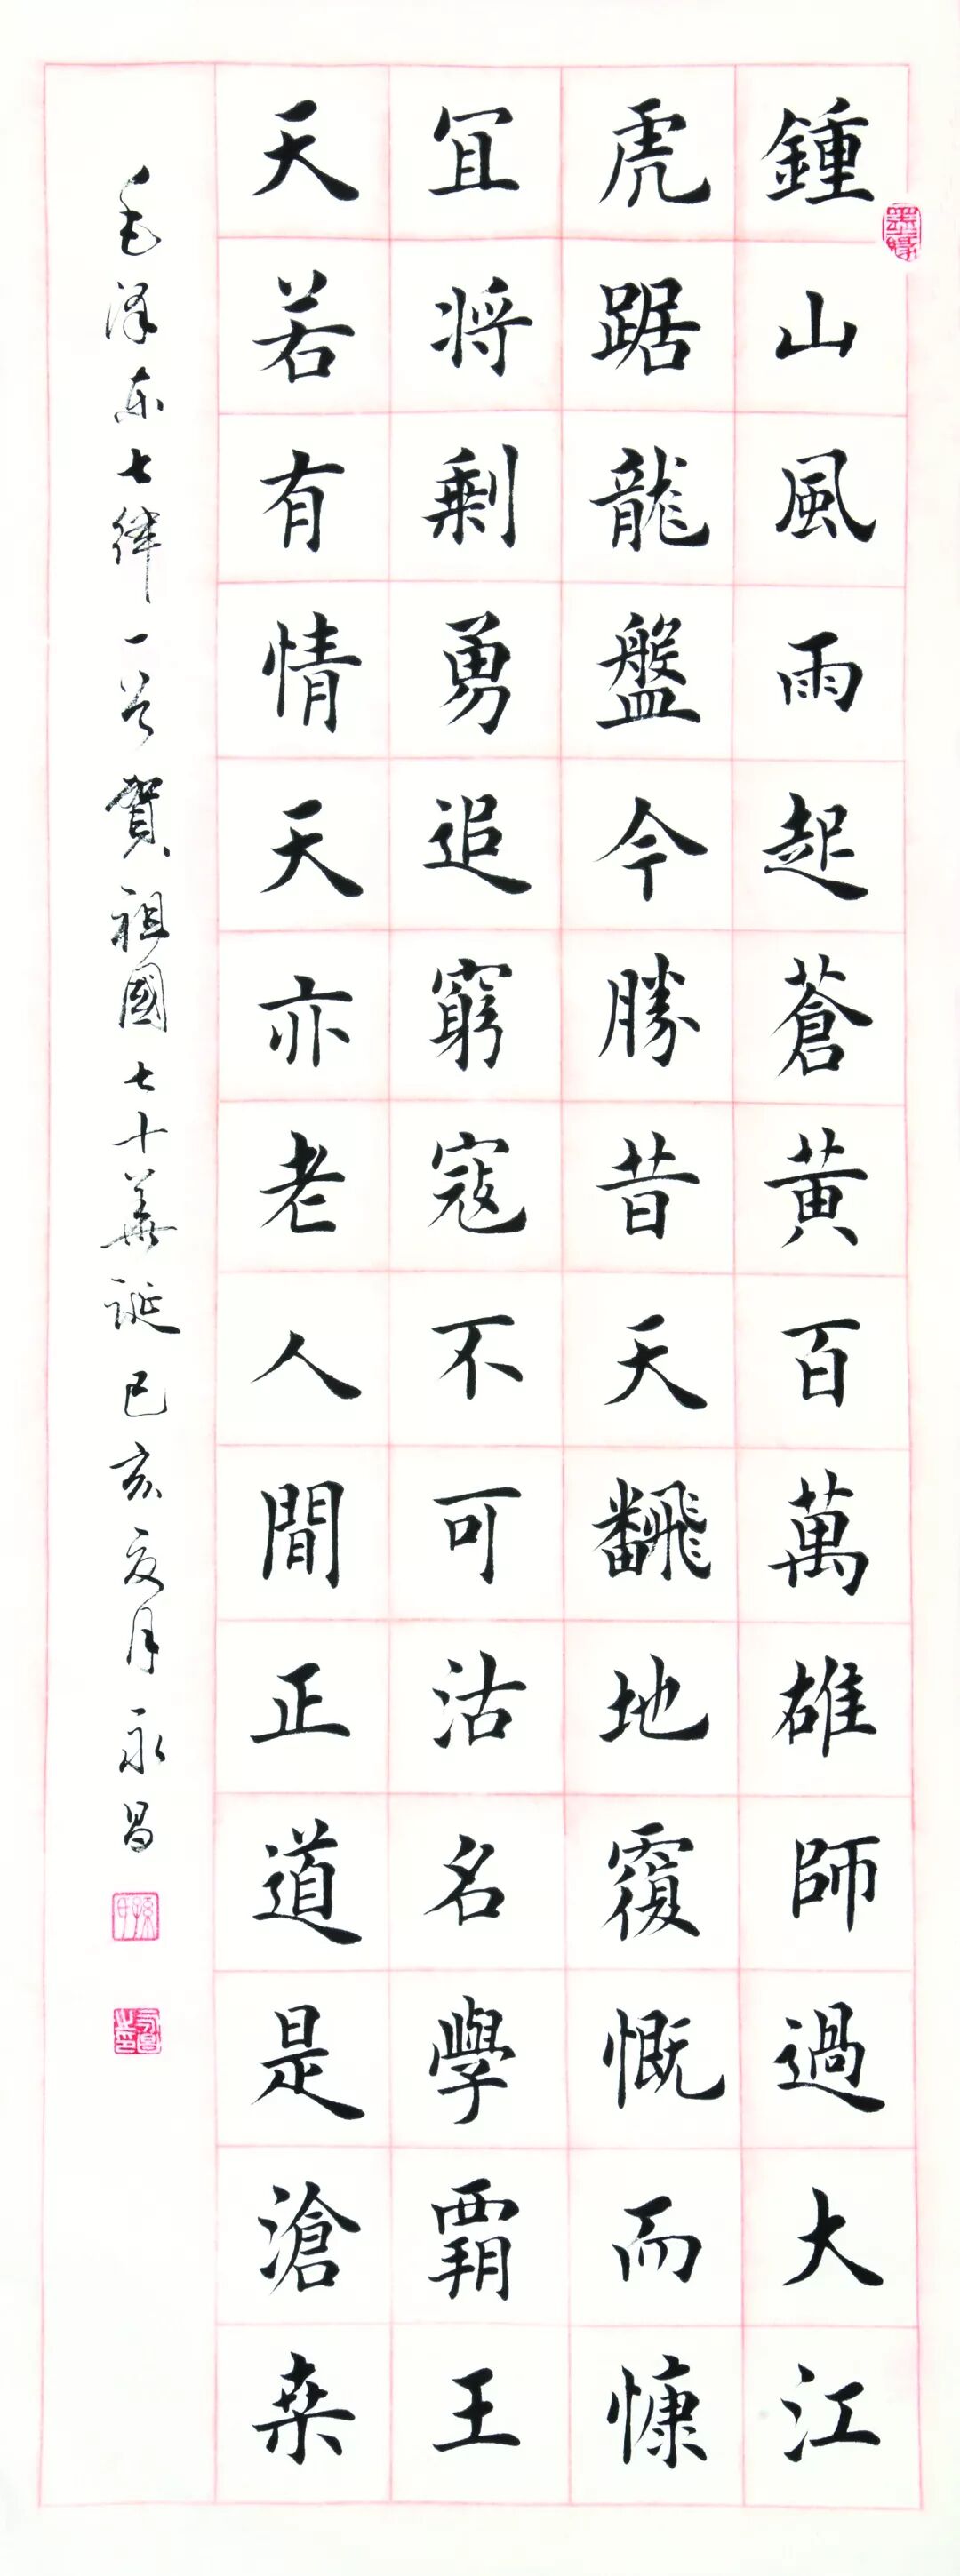 鍾山風雨起蒼黃百萬雄師過大江
虎踞龍盤今勝昔天飜地覆慨而慷
冝将剩勇追窮寇不可沽名學覇王
天若有情天亦老人間正道是滄桒
毛泽东七律一首賀祖國七十華誕己亥夏月永昌